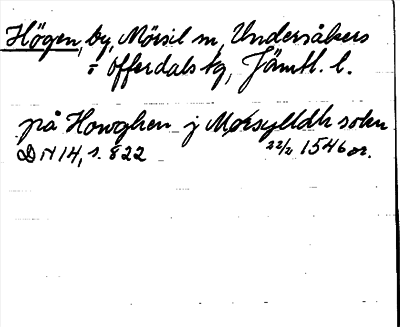 Högen, by, Mörsil sn, Undersåkers
o Offerdals tg, Jämtl. l.
på Howghen j Morsylldh sokn
DN 14, s. 822 22/2 1546 or.